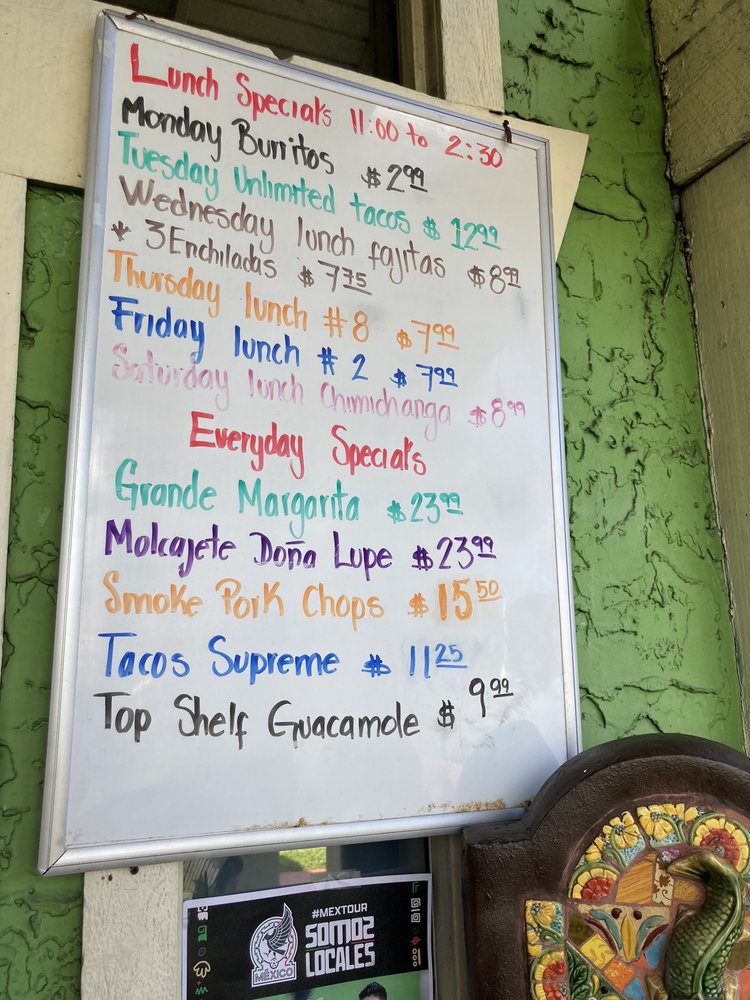 Lunch Specials 11:00 to 2:30
Monday Burritos $2.99
Tuesday Unlimited tacos $12.99
Wednesday lunch fajitas $8.99
* 3 Enchiladas $7.75
Thursday lunch #8 $7.99
Friday lunch #2 $7.99
Saturday lunch Chimichanga $8.99
Everyday Specials
Grande Margarita $23.99
Molcajete Doña Lupe $23.99
Smoke Pork Chops $15.50
Tacos Supreme $11.25
Top Shelf Guacamole $9.99
#MEXTOUR
SOMOS
LOCALES
MÉXICO